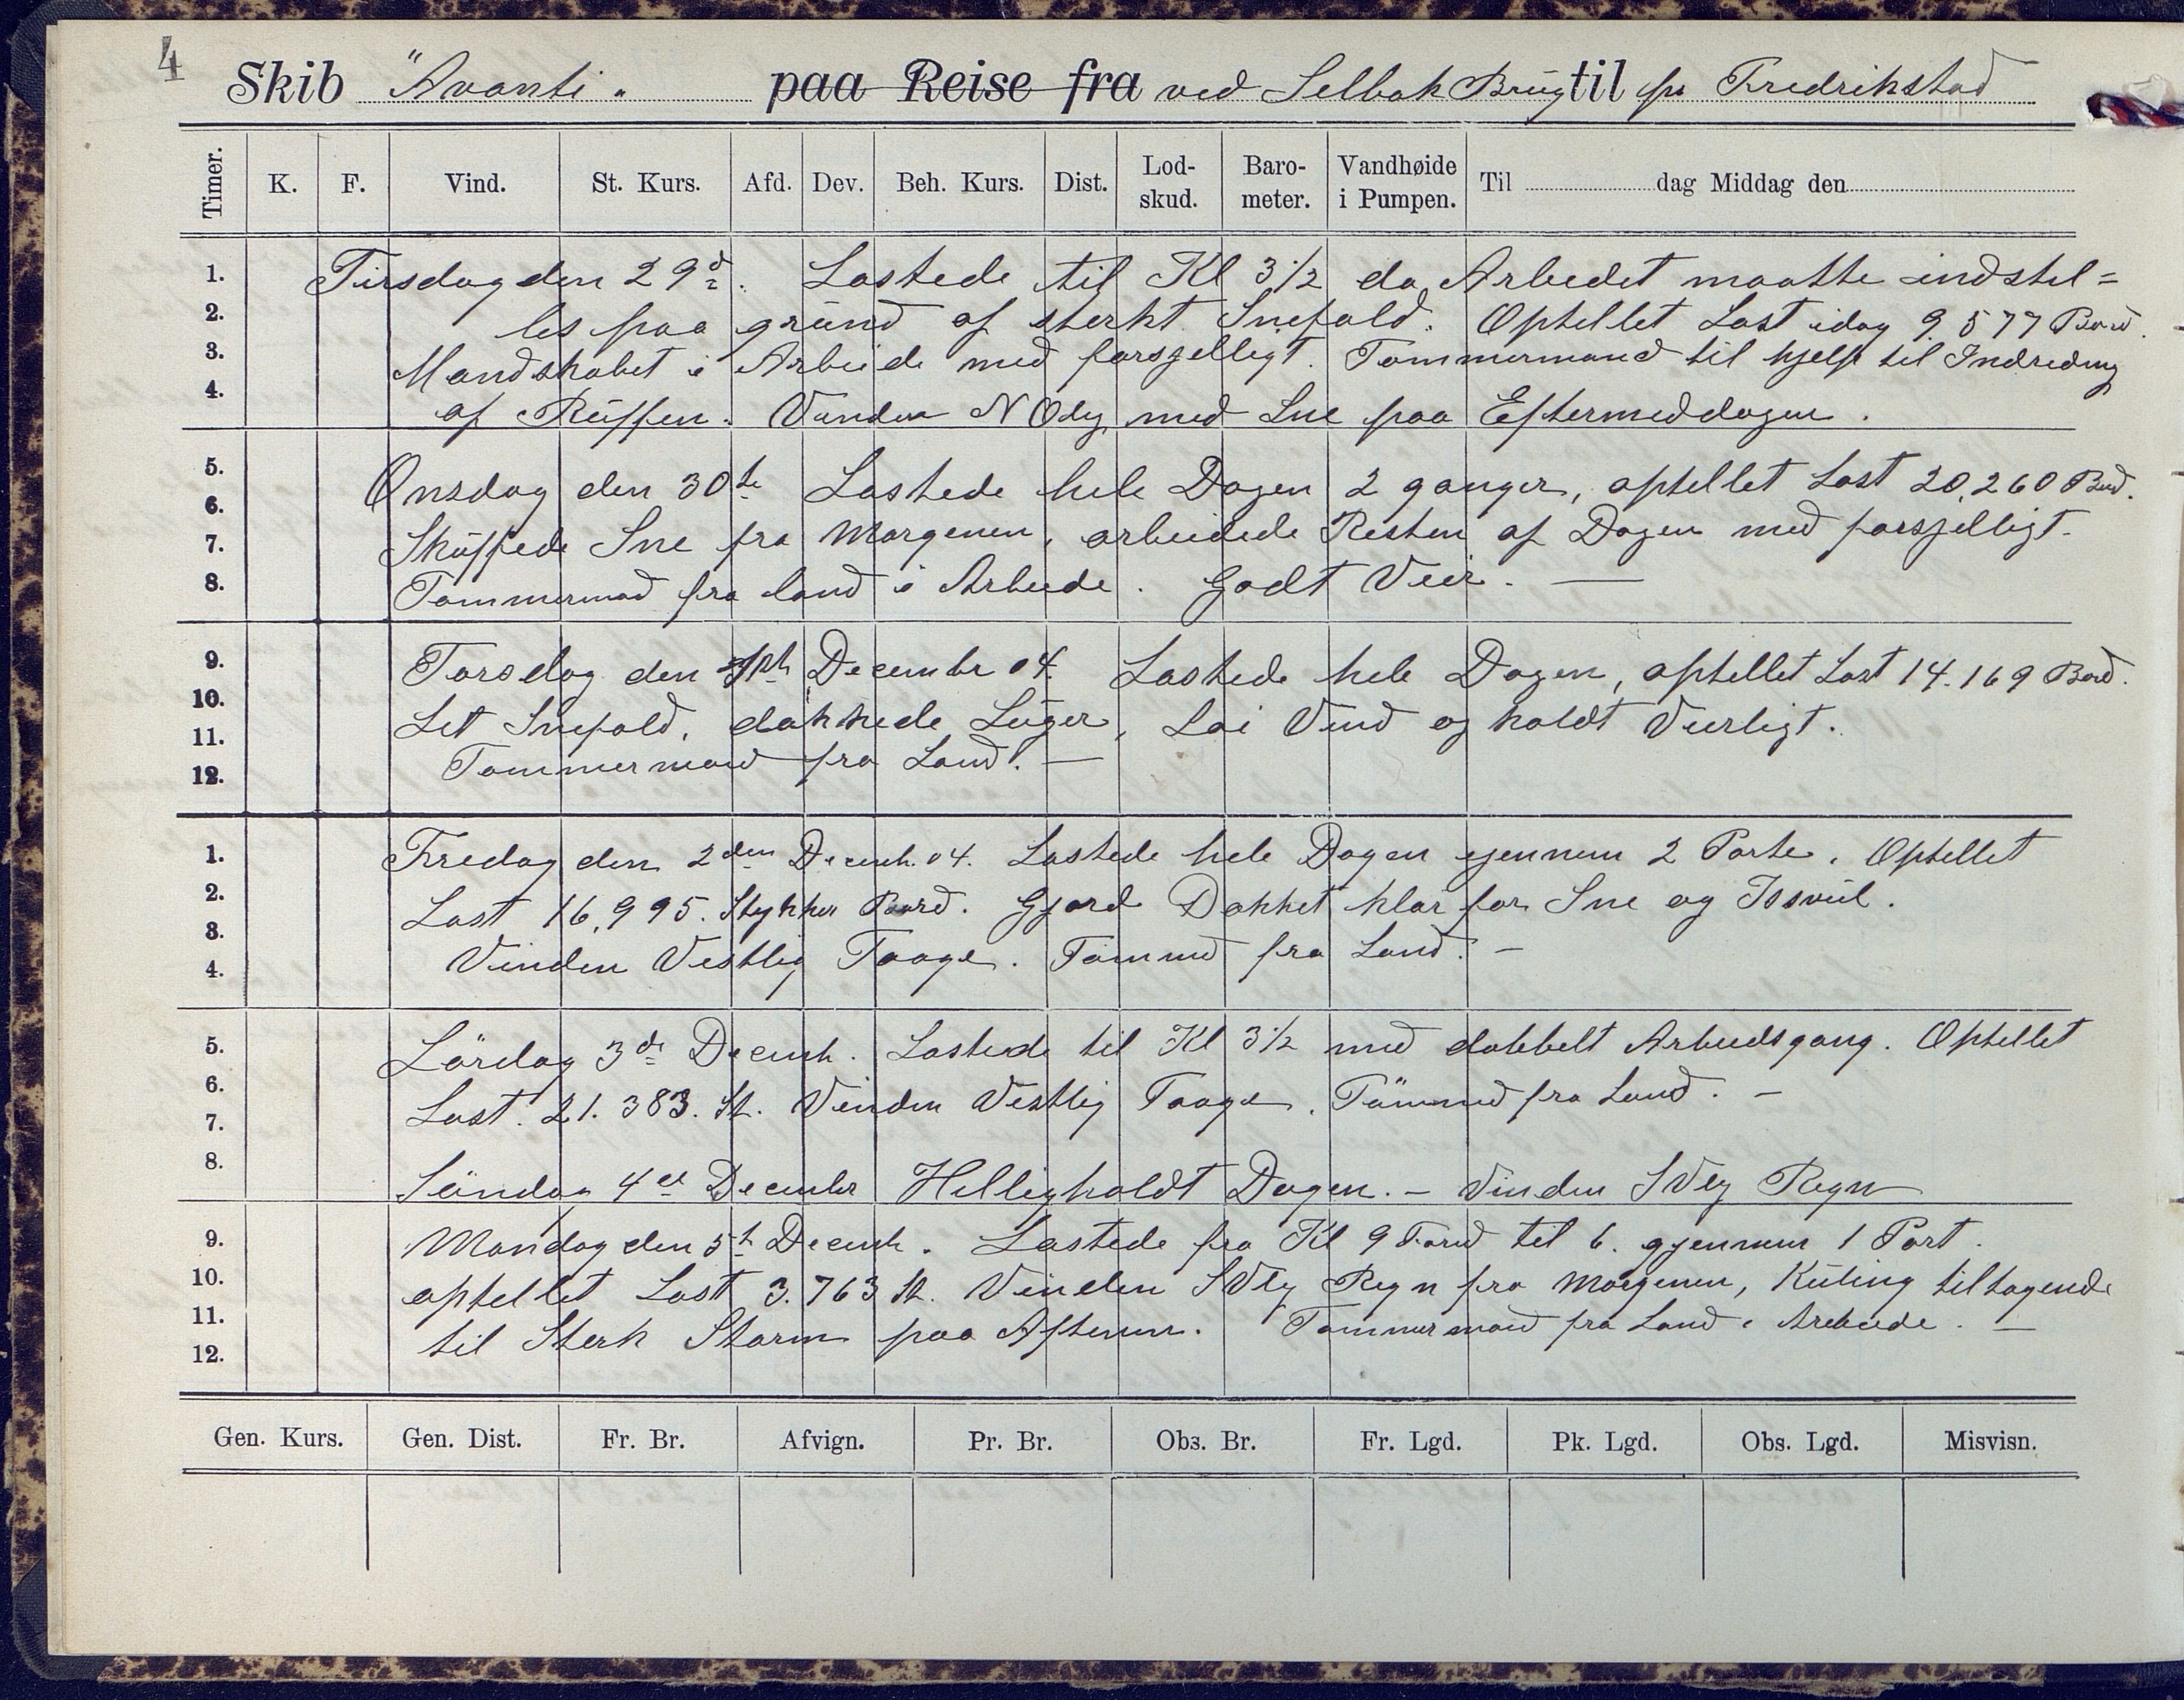 4
Skib "Avanti" paa Reise fra ved Selbak Brug til pr Fredrikstad
Timer. K. F. Vind. St. Kurs. Afd. Dev. Beh. Kurs. Dist. Lod-skud. Baro-meter. Vandhøide i Pumpen. Til dag Middag den
1. Tirsdag den 29d. Lastede til Kl 3 1/2 da Arbeidet maatte indstil=
2. les paa grund af sterkt Snefald. Optellet Last idag 9.577 Bord.
3. Mandskabet i Arbeide med forsjelligt. Tommermand til hjelp til Indreding
4. af Ruffen. Vinden NOlig med Sne paa Eftermeddagen.
5. Onsdag den 30te Lastede hele Dagen 2 ganger, optellet Last 20,260 Bord.
6.
7. Skuffede Sne fra Morgenen, arbeidede Resten af Dagen med forsjelligt.
8. Tommermad fra land i Arbeide. Godt Veir. —
9. Torsdag den Decembr 04. Lastede hele Dagen, optellet Last 14.169 Bord.
10. Let Snefald, dækkede Luger, Lai Vind og koldt Veirligt.
11.
12. Tommermand fra Land. —
1. Fredag den 2den Decemb. 04. Lastede hele Dagen gjennem 2 Porte. Optellet
2. Last 16,995. Stykker Bord. Gjord Dækket klar for Sne og Is
3.
4. Vinden Vestlig Taage. Tömmd fra Land. —
5. Lördag 3de Decemb. Lastede til Kl 3 1/2 med dobbelt Arbeidsgang. Optellet
6. Last. 21.383. St. Vinden Vestlig Taage. Tömmd fra Land. —
7.
8. Söndag 4de Decembr Helligholdt Dagen. — Vinden SVlig Regn
9. Mandag den 5te Decemb. Lastede fra Kl 9 Formd til 6. gjennem 1 Port.
10. optellet Last 3.763 St. Vinden SVlig Regn fra Morgenen, Kuling tiltagende
11. til Sterk Storm paa Aftenen. Tommermand fra Land i Arbeide. —
12.
Gen. Kurs. Gen. Dist. Fr. Br. Afvign. Pr. Br. Obs. Br. Fr. Lgd. Pk. Lgd. Obs. Lgd. Misvisn.